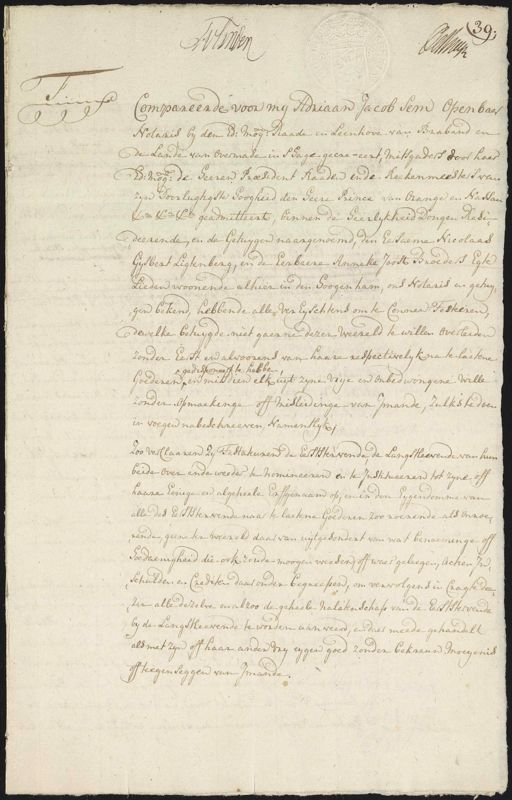 39.
Compareerde voor my Adriaan Jacob Sem Openbaar
Notaris by den Ed: Mog: Raade en Leenhove van Braband en
de Lande van Overmaze in s'Hage geadmitteert, mitsgaders door haar
Ed: Mog: de Heeren President Raade ende Rekenmeesters van
zyn Doorlugtigste Hoogheid den Heere Prince van Orange en Nassau
&a &a &a geadmitteert, binnen de Heerlykheid Dongen Resi-
deerende, en de Getuygen naargenoemd, den Eersaeme Nicolaas
Gysbert Ligtenberg, en de Eerbaere Anneke Joost Broeders Egte
Lieden woonende alhier in den Hoogenham, ons Notaris en getuy-
gen bekend, hebbende alle verEyschtens om te Connen Testeren,
dewelke betuygde niet gaerne dezer Weereld te willen overleiden
zonder Eerst en alvoorens van haare respectivelyk na te laetene
Goederen gedisponeert te hebben, en mitsdien elk uyt zyne vrye en onbedwongene wille
zonder opmaekinge off misleidinge van Imande, zulks te doen
in voegen nabeschreeven, Namentlyk,
Zoo verclaaren Zy Testateuren de Eerststervende de Langstleevende van hun
beide over ende weeder te nomineeren en te Institueeren tot zyne off
haare Eenige en algeheele Erffgenaam op, en in den Eygendomme van
alle des Eerststervende naa te laetene Goederen zoo roerende als onroe-
rende, geene ter weereld daar van uytgesondert van wat benaeminge off
Gedaenigheid die ook zoude moogen weesen, off waar gelegen, Actien In-
Schulden en Crediten daar onder begreepen, om vervolgens in Cragte de-
zer alle dezelve en alzoo de geheele Nalatenschap van de Eerststervende
by de Langstleevende te worden aanveerd, en daar meede gehandelt
als met zyn off haar ander vry eygen goed zonder bekreun moeyenis
off teegenzeggen van Imande.